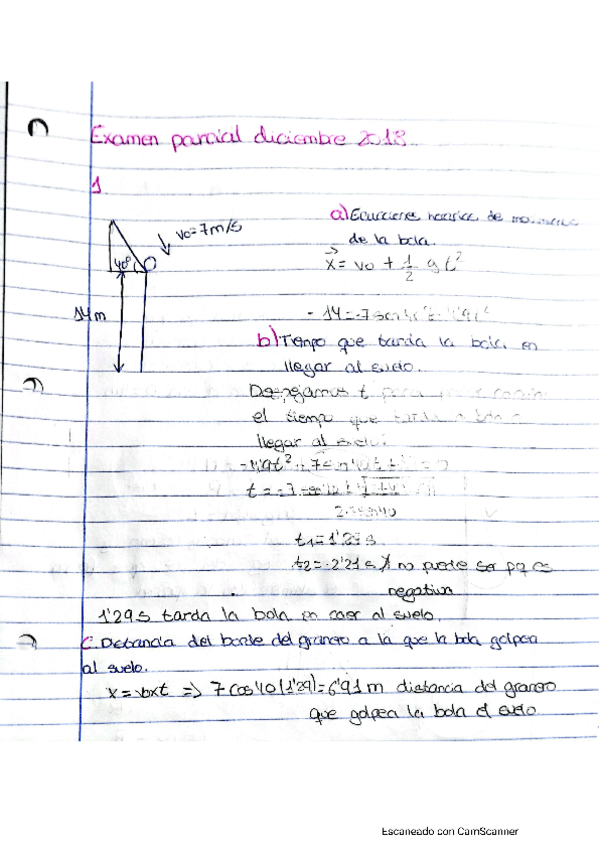 Examen parcial diciembre 2018.
1
a) Ecuaciones de
de la bola.
vo=7m/s
40º
x = vo + 1/2 g t²
14m
- 14 = -7
b) Tiempo que tarda la bola en
llegar al suelo.
Despejamos t
el tiempo que tarda la bola
llegar al suelo:
t =
t1 = 1'29 s
t2 = -2'21 s no puede ser pq es
negativa
1'29 s tarda la bola en caer al suelo.
C. Distancia del borde del granero a la que la bola golpea
al suelo.
x = voxt => 7 cos 40 (1'29) = 6'91 m distancia del granero
que golpea la bola el suelo
Escaneado con CamScanner